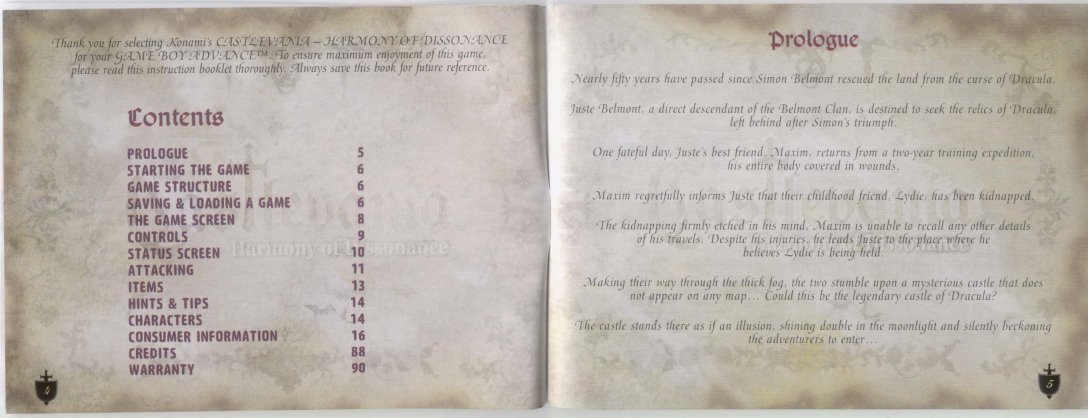 Thank you for selecting Konami's CASTLEVANIA – HARMONY OF DISSONANCE
for your GAME BOY ADVANCE™. To ensure maximum enjoyment of this game,
please read this instruction booklet thoroughly. Always save this book for future reference.
Contents
PROLOGUE 5
STARTING THE GAME 6
GAME STRUCTURE 6
SAVING & LOADING A GAME 6
THE GAME SCREEN 8
CONTROLS 9
STATUS SCREEN 10
ATTACKING 11
ITEMS 13
HINTS & TIPS 14
CHARACTERS 14
CONSUMER INFORMATION 16
CREDITS 88
WARRANTY 90
Harmony of Dissonance
4
Prologue
Nearly fifty years have passed since Simon Belmont rescued the land from the curse of Dracula.
Juste Belmont, a direct descendant of the Belmont Clan, is destined to seek the relics of Dracula,
left behind after Simon's triumph.
One fateful day, Juste's best friend, Maxim, returns from a two-year training expedition,
his entire body covered in wounds.
Maxim regretfully informs Juste that their childhood friend, Lydie, has been kidnapped.
The kidnapping firmly etched in his mind, Maxim is unable to recall any other details
of his travels. Despite his injuries, he leads Juste to the place where he
believes Lydie is being held.
Making their way through the thick fog, the two stumble upon a mysterious castle that does
not appear on any map... Could this be the legendary castle of Dracula?
The castle stands there as if an illusion, shining double in the moonlight and silently beckoning
the adventurers to enter...
5